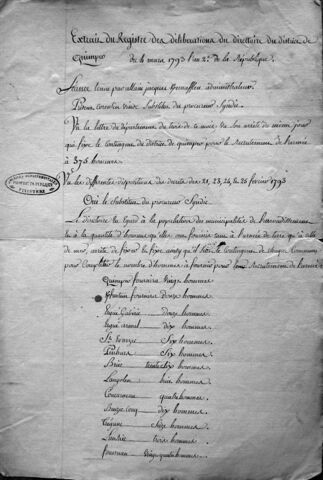 Extrait du Registre des délibérations du directoire du district de
Quimper du 6 mars 1793 l'an 2e de la République.
Séance tenue par allain jacques administrateur
Présent corentin vinoc Substitut du procureur Syndic
Vu la lettre du département du de ce mois la loi arrêté du même jour
qui fixe le contingent du district de quimper pour le Recrutement de l'armée
à 375 hommes.
Vu les differentes dispositions des decrets des 21, 23, 24 & 25 fevrier 1793
Oui le Substitut du procureur Syndic
Le directoire eu égard à la population des municipalités de
à la quantité d'hommes qu'elles ont fournis tant à l'armée de terre qu'à celle
de mer, arrête de fixer le contingent de chaque Commune
pour Completter le nombre d'hommes à fournir pour le Recrutement de l'armée
Quimper fournira vingt hommes
Plouhin fournira douze hommes
Ergué Gabéric douze hommes
Ergué armel dix hommes
St Evarzec Six hommes
Penhars Six hommes
Briec trente six hommes
Langolen huit hommes
Concarneau quatre hommes
Beuzec conq dix hommes
Trégunc Seize hommes
Lanriec trois hommes
fouesnan vingt quatre hommes
ARCHIVES DÉPARTEMENTALES
FINISTÈRE